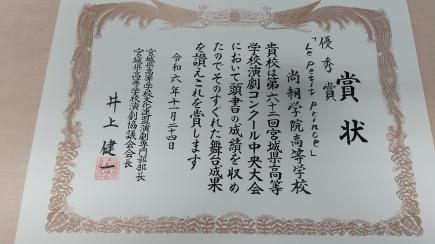 賞状
優秀賞
「Le Petit Prince」
尚絅学院高等学校
貴校は第六十二回宮城県高等
学校演劇コンクール中央大会
において頭書の成績を収め
たのでそのすぐれた舞台成果
を讃えこれを賞します
令和六年十一月二十四日
宮城県高等学校文化連盟演劇専門部部長
宮城県高等学校演劇協議会会長
井上健一